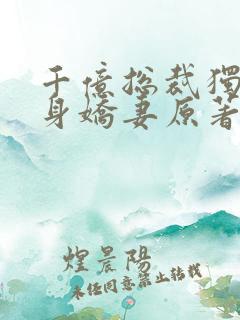 千億總裁獨
身嬌妻原著
煌晨陽
未经同意禁止转载